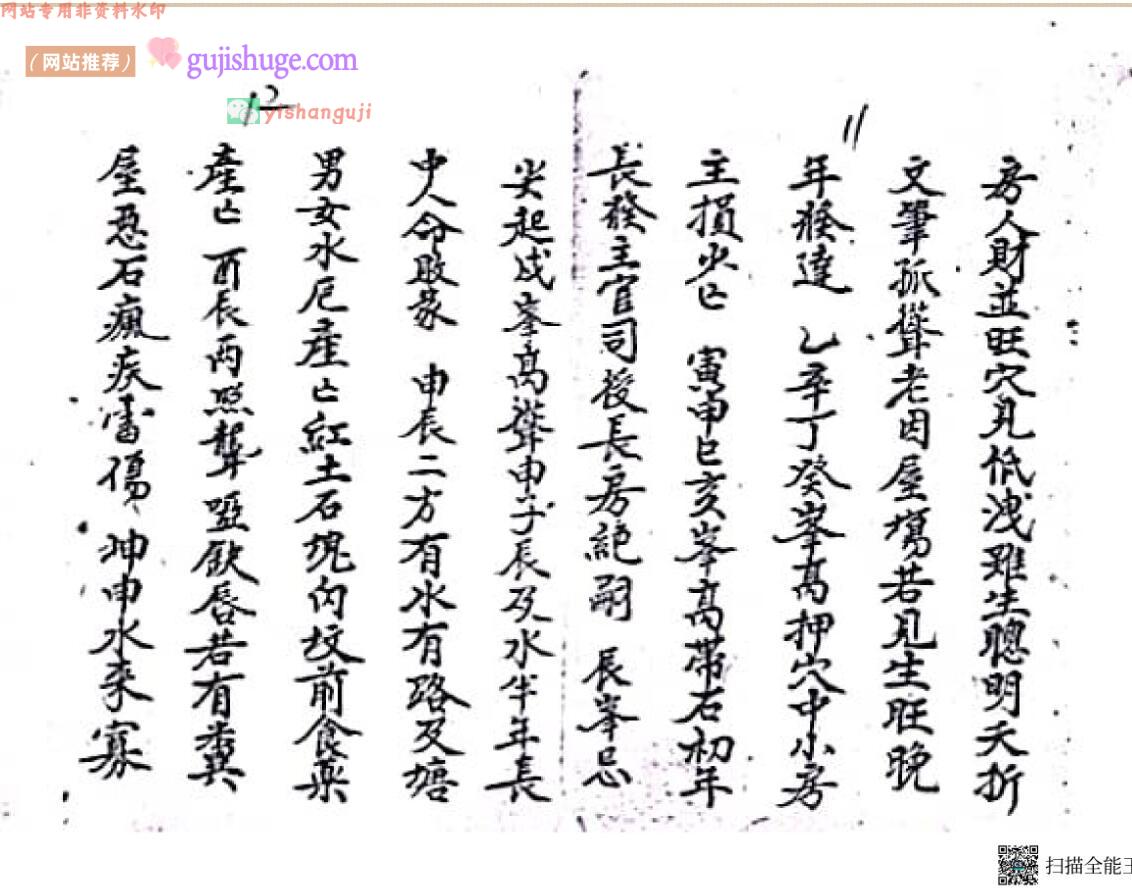 网站专用非资料水印
(网站推荐) gujishuge.com
yishanguji
11
房人財並旺穴見低洩雖生聰明夭折
文筆孤聳老因屋塲若見生旺晚
年發達 乙辛丁癸峯高押穴中小房
主損少亡 寅申巳亥峯高帶石初年
長發主官司授長房絕嗣 長峯忌
12
尖起戌峯高聳申子辰及水半年長
中人命敗家 申辰二方有水有路及塘
男女水厄產亡紅土石塊內坟前食藥
產亡 酉辰两照聾啞欽唇若有糞
屋惡石瘋疾雷傷 坤申水来寡
扫描全能王